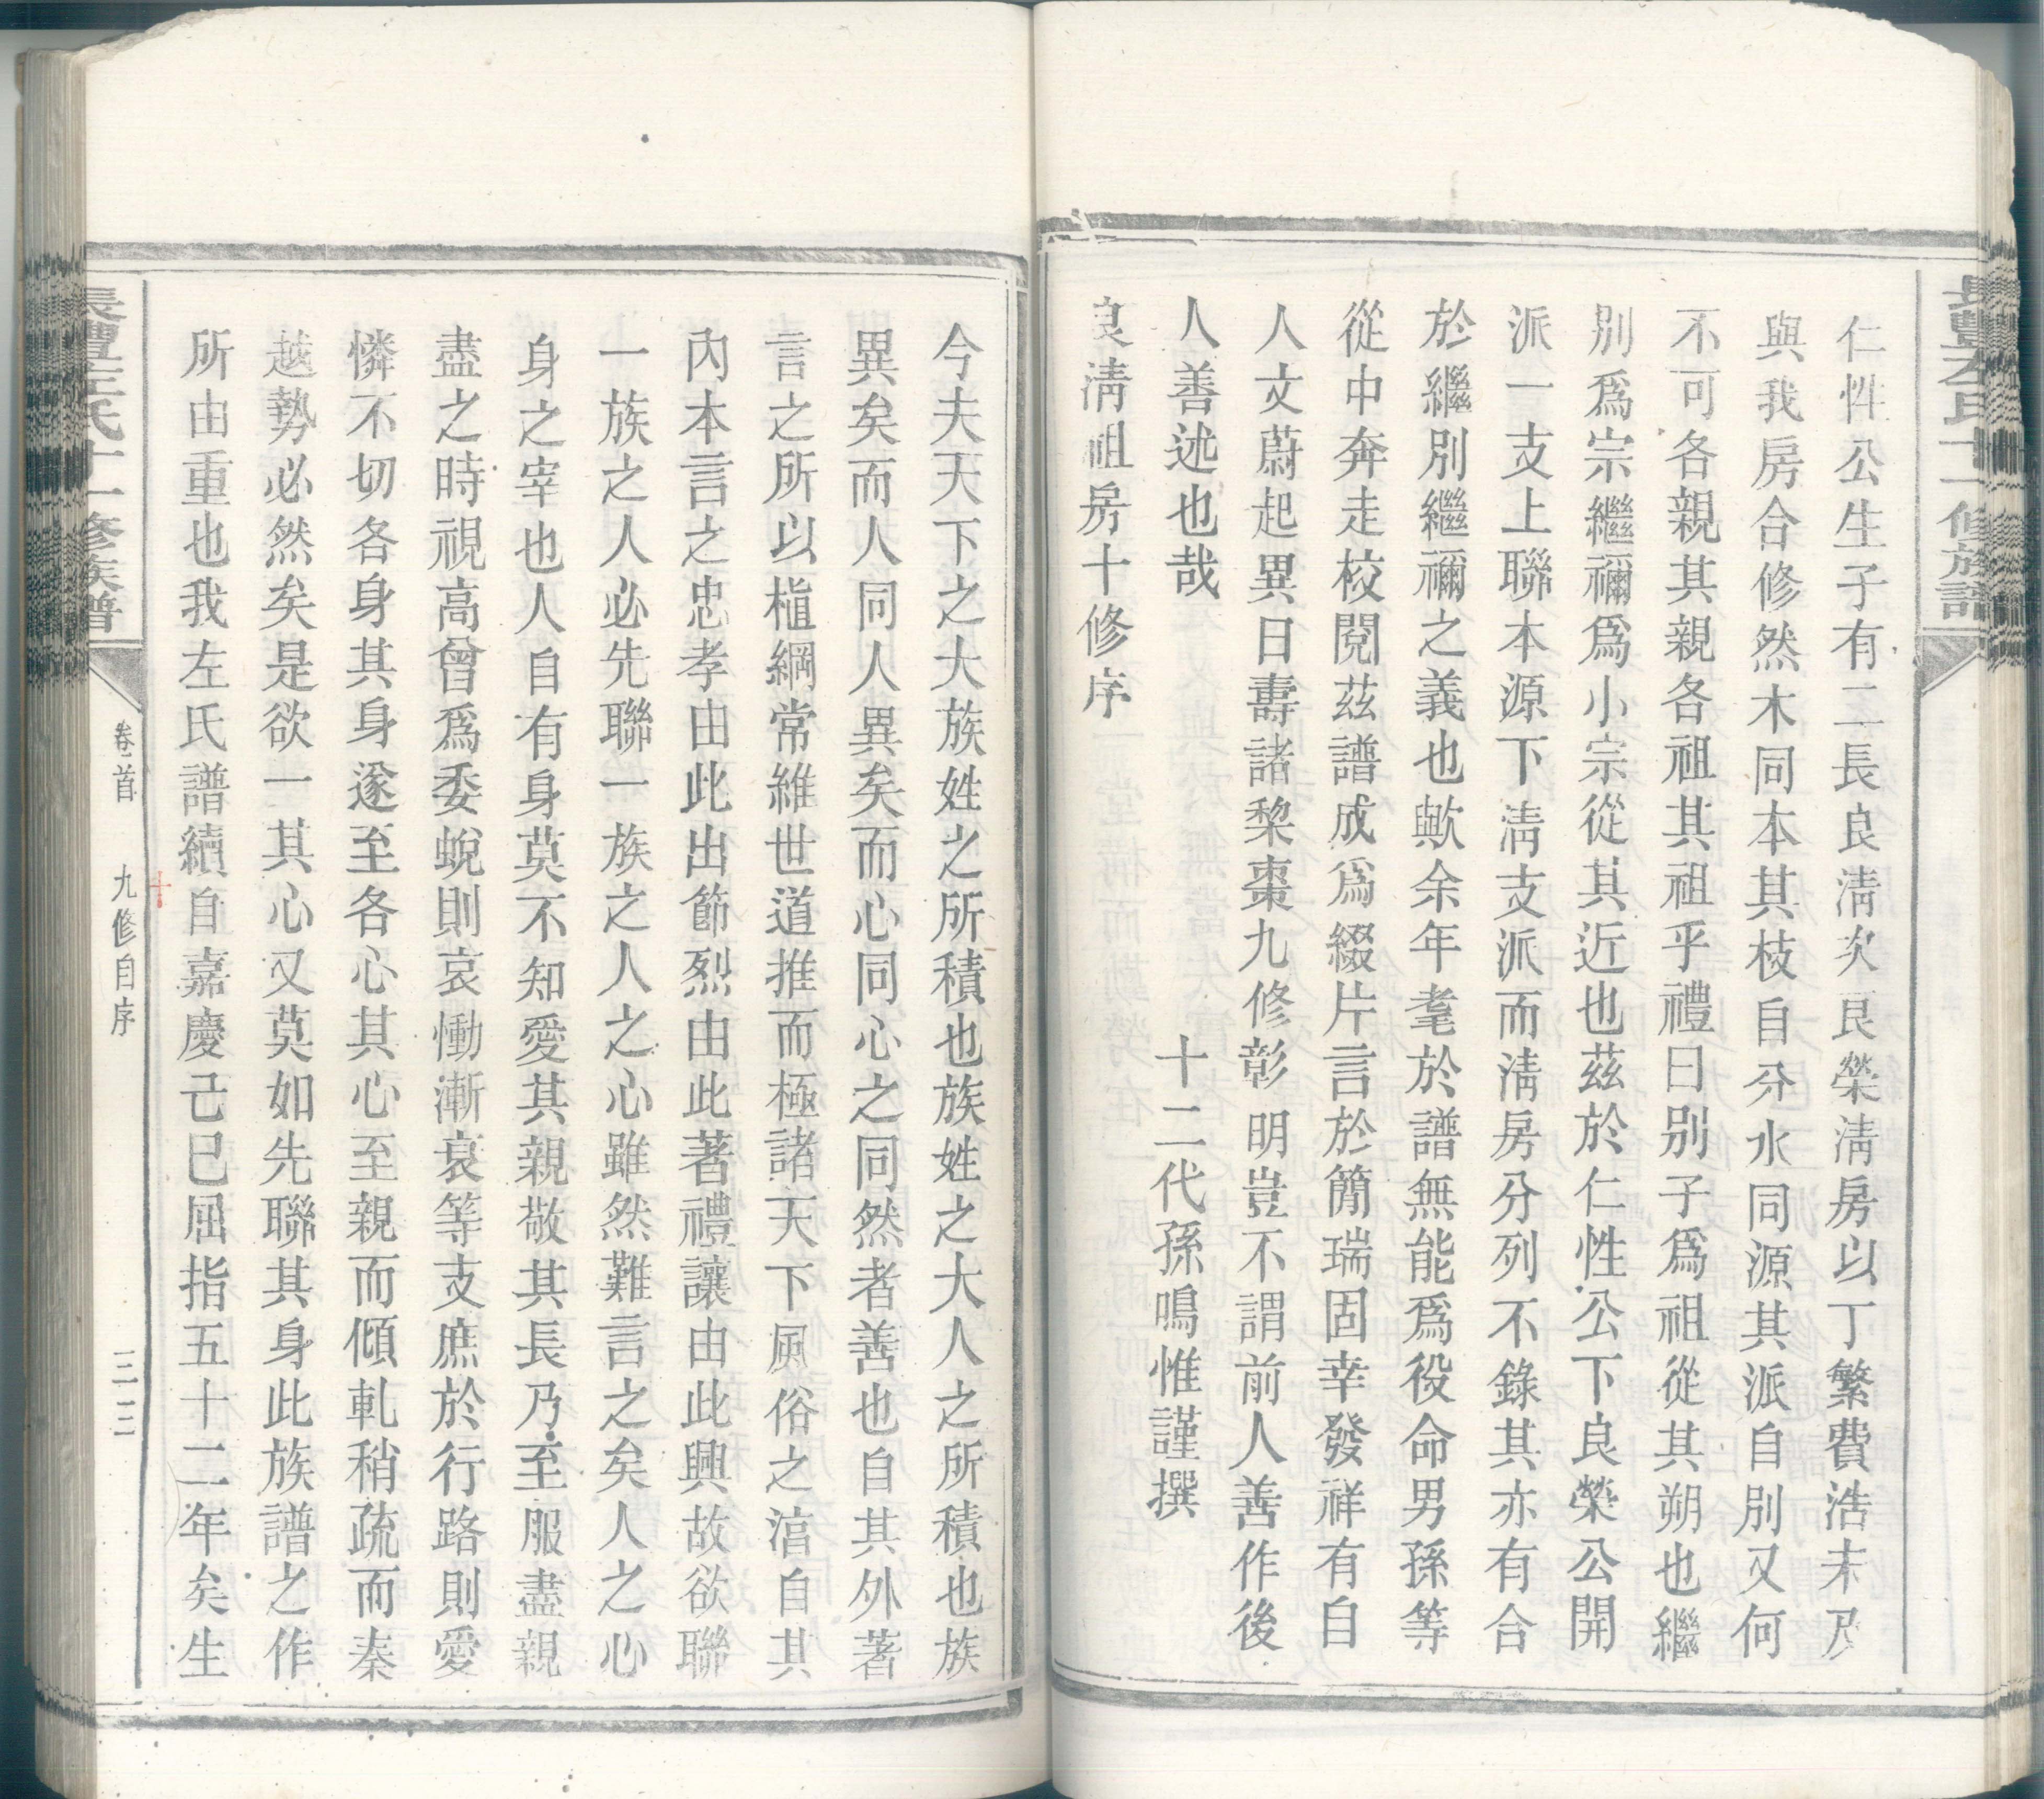 長豐左氏十一修族譜
仁性公生子有二長良淸次良榮淸房以丁繁費浩未及
與我房合修然木同本其枝自分水同源其派自別又何
不可各親其親各祖其祖乎禮曰別子爲祖從其朔也繼
別爲宗繼禰爲小宗從其近也茲於仁性公下良榮公開
派一支上聯本源下淸支派而淸房分列不錄其亦有合
於繼別繼禰之義也歟余年耄於譜無能爲役命男孫等
從中奔走校閱茲譜成爲綴片言於簡瑞固幸發祥有自
人文蔚起異日壽諸棃棗九修彰明豈不謂前人善作後
人善述也哉
十二代孫鳴惟謹撰
良淸祖房十修序
今夫天下之大族姓之所積也族姓之大人之所積也族
異矣而人同人異矣而心同心之同然者善也自其外著
言之所以植綱常維世道推而極諸天下風俗之淳自其
內本言之忠孝由此出節烈由此著禮讓由此興故欲聯
一族之人必先聯一族之人之心雖然難言之矣人之心
身之宰也人自有身莫不知愛其親敬其長乃至服盡親
盡之時視高曾爲委蛻則哀慟漸衰等支庶於行路則愛
憐不切各身其身遂至各心其心至親而傾軋稍疏而秦
越勢必然矣是欲一其心又莫如先聯其身此族譜之作
所由重也我左氏譜續自嘉慶己巳屈指五十二年矣生
長豐左氏十一修族譜
卷首 九修自序 三三
十